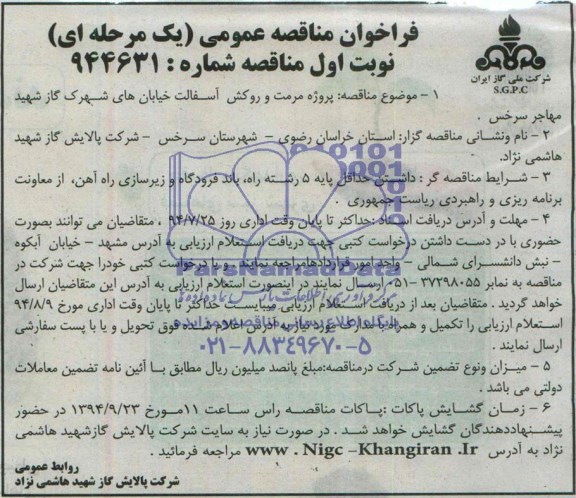 فراخوان مناقصه عمومی (یک مرحله ای)
نوبت اول مناقصه شماره : ۹۴۴۶۳۱
شرکت ملی گاز ایران
S.G.P.C
۱ – موضوع مناقصه: پروژه مرمت و روکش آسفالت خیابان های شهرک گاز شهید
مهاجر سرخس .
۲ – نام ونشانی مناقصه گزار: استان خراسان رضوی – شهرستان سرخس – شرکت پالایش گاز شهید
هاشمی نژاد.
۳ – شرایط مناقصه گر : داشتن حداقل پایه ۵ رشته راه، باند فرودگاه و زیرسازی راه آهن، از معاونت
برنامه ریزی و راهبردی ریاست جمهوری .
۴ – مهلت و آدرس دریافت اسناد :حداکثر تا پایان وقت اداری روز ۹۴/۷/۲۵ ، متقاضیان می توانند بصورت
حضوری با در دست داشتن درخواست کتبی جهت دریافت استعلام ارزیابی به آدرس مشهد – خیابان آبکوه
– نبش دانشسرای شمالی – واحد امور قراردادهامراجعه نمایند . و یا درخواست کتبی خودرا جهت شرکت در
مناقصه به نمابر ۳۷۲۹۸۰۵۵-۰۵۱ ارسال نمایند در اینصورت استعلام ارزیابی به آدرس این متقاضیان ارسال
خواهد گردید . متقاضیان بعد از دریافت استعلام ارزیابی میبایست حداکثر تا پایان وقت اداری مورخ ۹۴/۸/۹
استعلام ارزیابی را تکمیل و همراه با مدارک مورد نیاز به آدرس اعلام شده فوق تحویل و یا با پست سفارشی
ارسال نمایند .
۵ – میزان ونوع تضمین شرکت درمناقصه:مبلغ پانصد میلیون ریال مطابق با آئین نامه تضمین معاملات
دولتی می باشد .
۶ – زمان گشایش پاکات :پاکات مناقصه راس ساعت ۱۱مورخ ۱۳۹۴/۹/۲۳ در حضور
پیشنهاددهندگان گشایش خواهد شد . در صورت نیاز به سایت شرکت پالایش گازشهید هاشمی
نژاد به آدرس www . Nigc –Khangiran .Ir مراجعه فرمائید .
روابط عمومی
شرکت پالایش گاز شهید هاشمی نژاد
ParsNamadData
۰۲۱-۸۸۳۴۹۶۷۰-۵